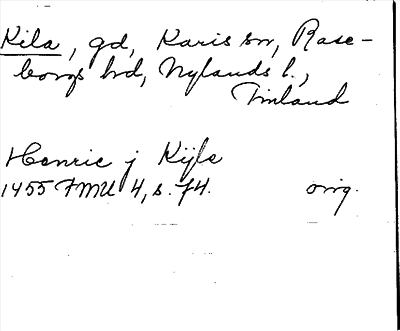 Kila, gd, Karis sn, Rase-
borgs hd, Nylands l.,
Finland
Henric j Kijle
1455 FMU 4, s. 74. orig.